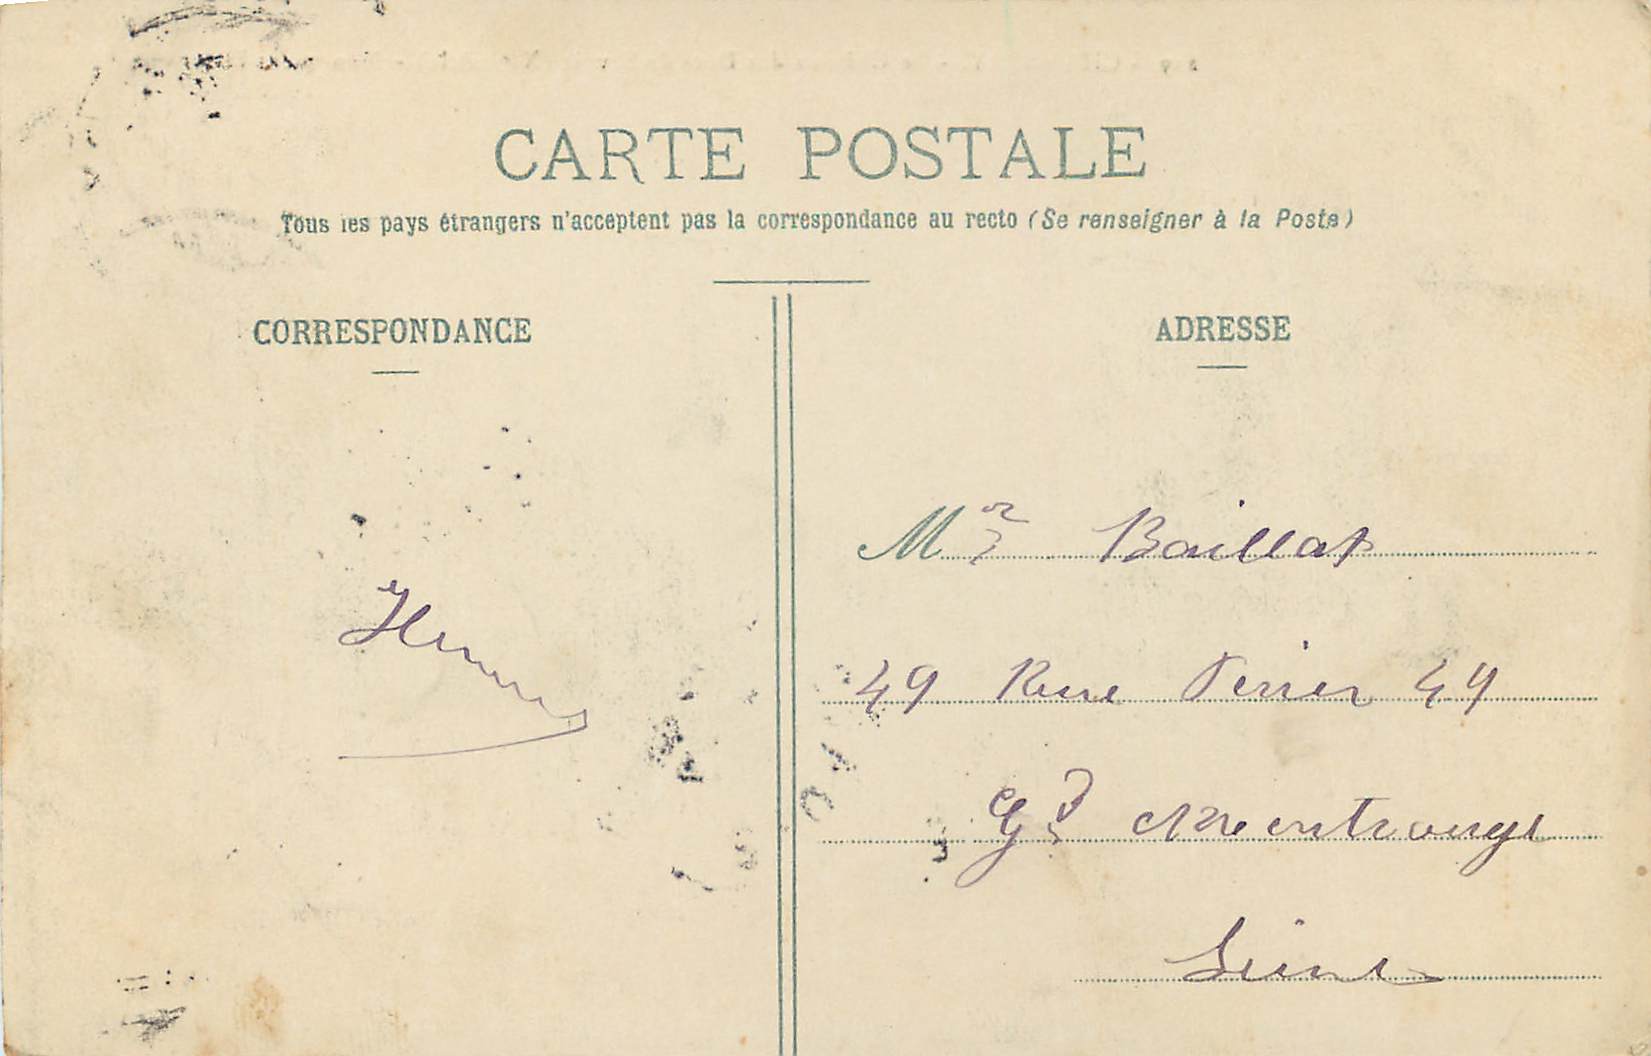 CARTE POSTALE
Tous les pays étrangers n'acceptent pas la correspondance au recto (Se renseigner à la Poste)
CORRESPONDANCE
ADRESSE
Mr Baillat
49 Rue Perier 49
Gd Montrouge
Seine